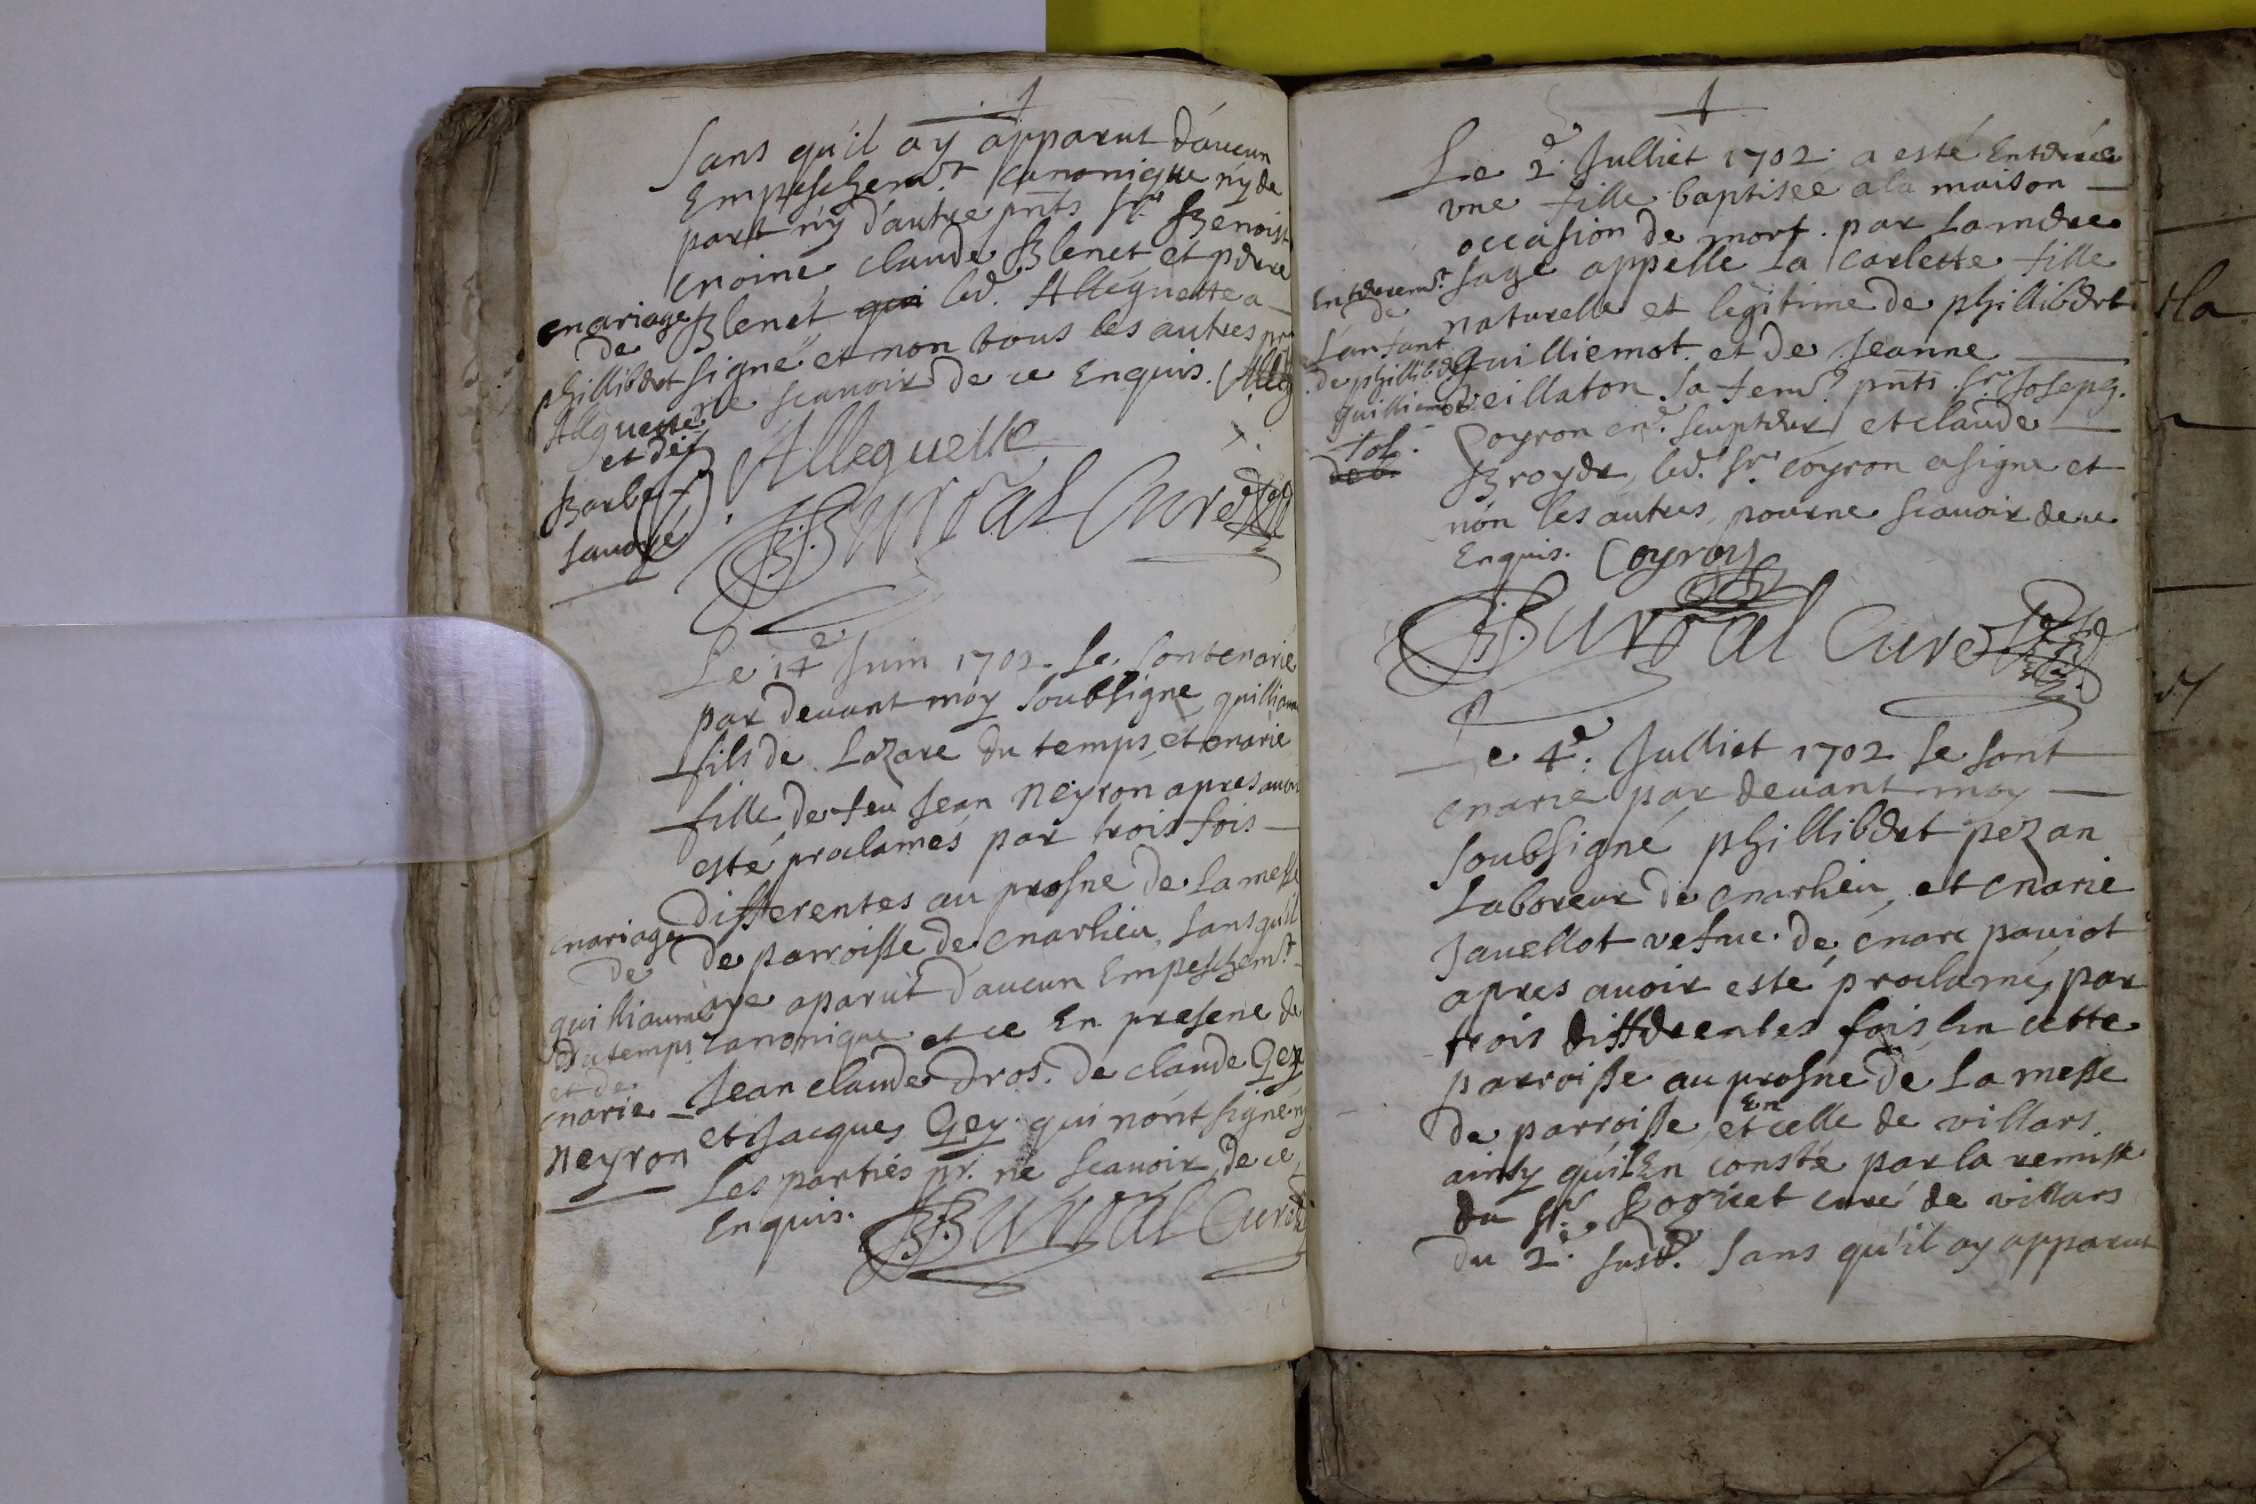 Sans qu'il ay apparut d'aucun
Empeschem.t Canonique ny de
part ny d'autre pnts Srs Benoist
moine, claude Blenet et pierre
Blenet qui led. Alleguette a
signé et non tous les autres pr
ne scavoir de ce Enquis. Alleg
mariage
de
phillibert
Alleguette
et de
Barbe
savoye
Alleguette
Burdal Curé
Le 14e Juin 1702. Se sont marié
par devant moy soubsigné, guilliaume
fils de Lazare du temps, et marie
fille de feu Jean Neyron apres avoir
esté proclamés par trois fois
differentes au prosne de la messe
de parroisse de marlieu, sans qu'il
aye aparut d'aucun Empeschem.t
Canonique et ce En presene de
Jean claude Dros. de claude Gey
et Jacques Gey qui n'ont signé ny
Les partiés pr. ne scavoir de ce
Enquis. Burdal Curé
mariage
de
guilliaume
du temps
et de
marie
Neyron
Le 2e. Julliet 1702. a esté Enterrée
une fille baptiseé a la maison
occasion de mort. par la mere
sage appellé la carlette fille
naturelle et legitime de phillibert
guilliemot. et de Jeanne
eillaton sa fem.e pnts. Sr. Joseph.
Coyron me. sculpteur et claude
Broyer, led. Sr. coyron a signé et
non les autres pour ne scavoir de ce
Enquis. Coyron
Enterrem.t
de
L'anfant
de phillibert
guilliemot
Burdal Curé
e 4e. Julliet 1702 Se sont
marié par devant moy
soubsigné phillibert pezan
Laboreur de marlieu, et marie
Javellot vefue de marc pauiot
apres avoir esté proclamés par
trois differentes fois En cette
parroisse au prosne de la messe
de parroisse, et En celle de villars
ainsy qu'il En consté par la remisse
du Sr. Boricet curé de villars
du 2e. susd. Sans qu'il ay apparut